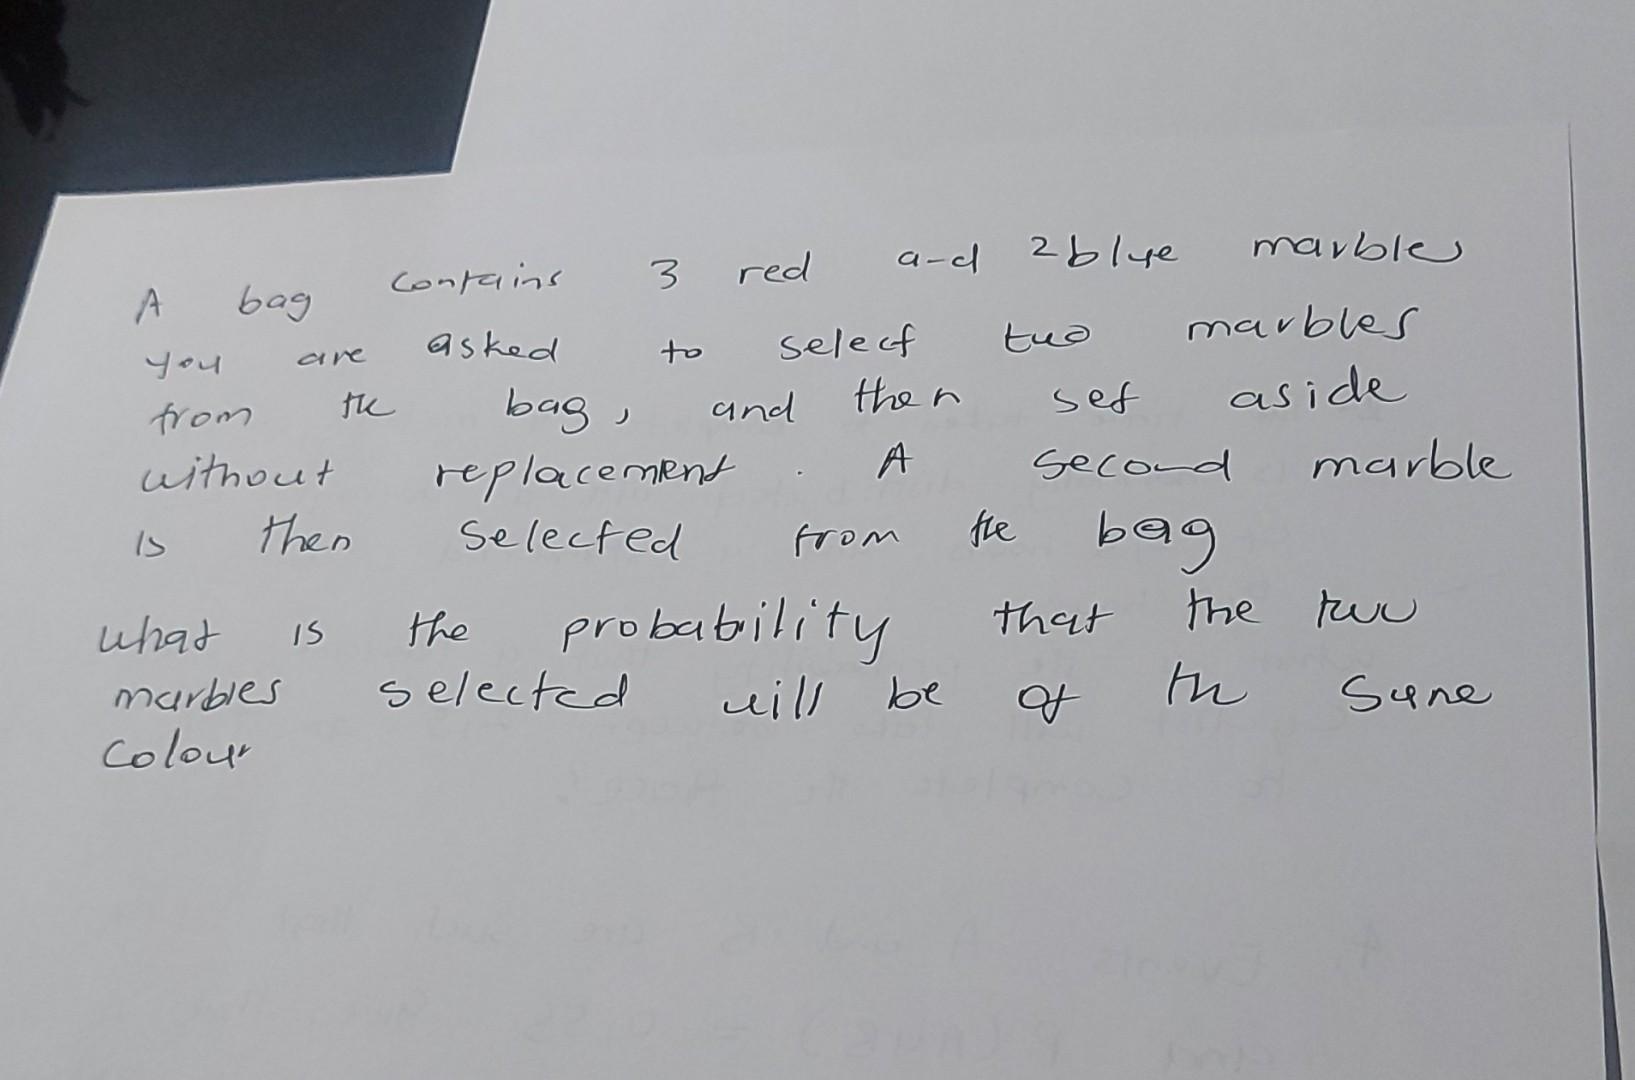 A bag contains 3 red and 2 blue marbles
you are asked to select two marbles
from the bag, and then set aside
without replacement. A second marble
is then selected from the bag
what is the probability that the two
marbles selected will be of the same
colour